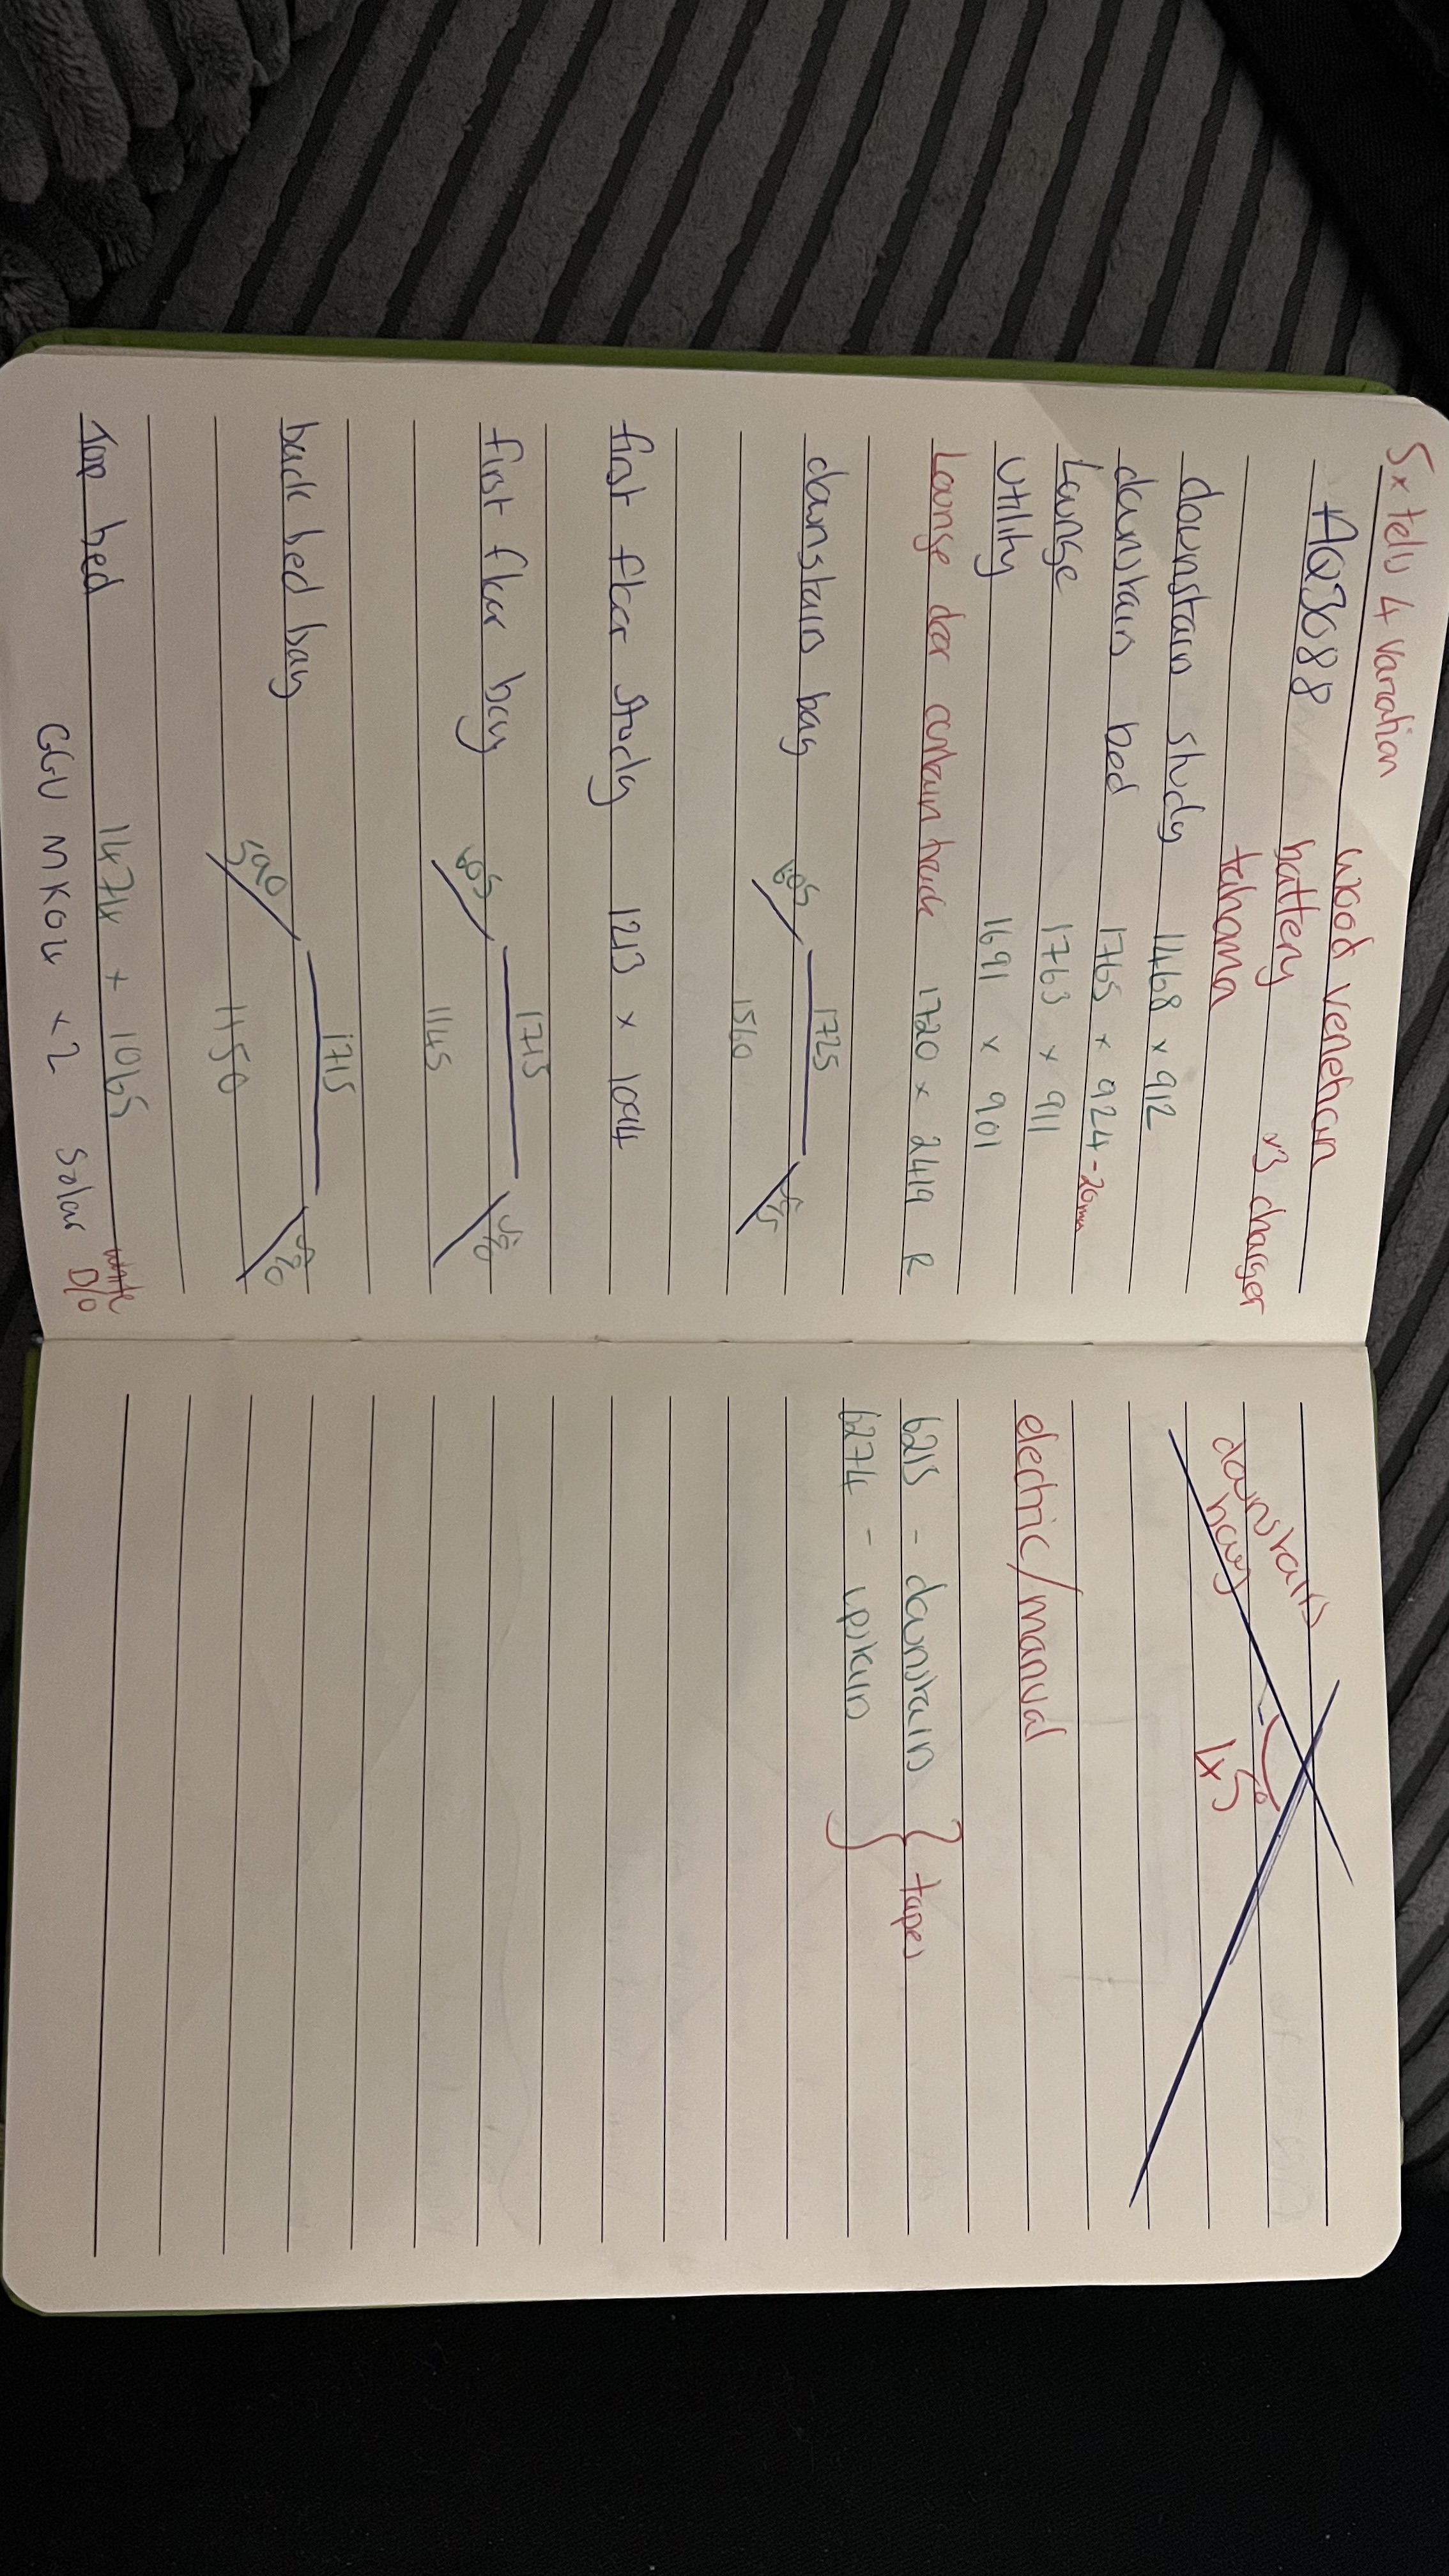 5x telis 4 variation
wood venetian
AQ3088 battery x3 charger
tahoma
downstairs study 1468 x 912
downstairs bed 1765 x 924 -20mm
Lounge 1763 x 911
Utility 1691 x 901
Lounge door curtain track 1720 x 2419 R
1725
downstairs bay 605
1560
first floor study 1213 x 1094
1715
first floor bay 605
1145
1715
back bed bay
590
1150
Top bed 1474 x 1065
GGU MK04 x 2 Solar D/O
downstairs
bay
45
electric/manual
6215 - downstairs
tapes
6274 - upstairs